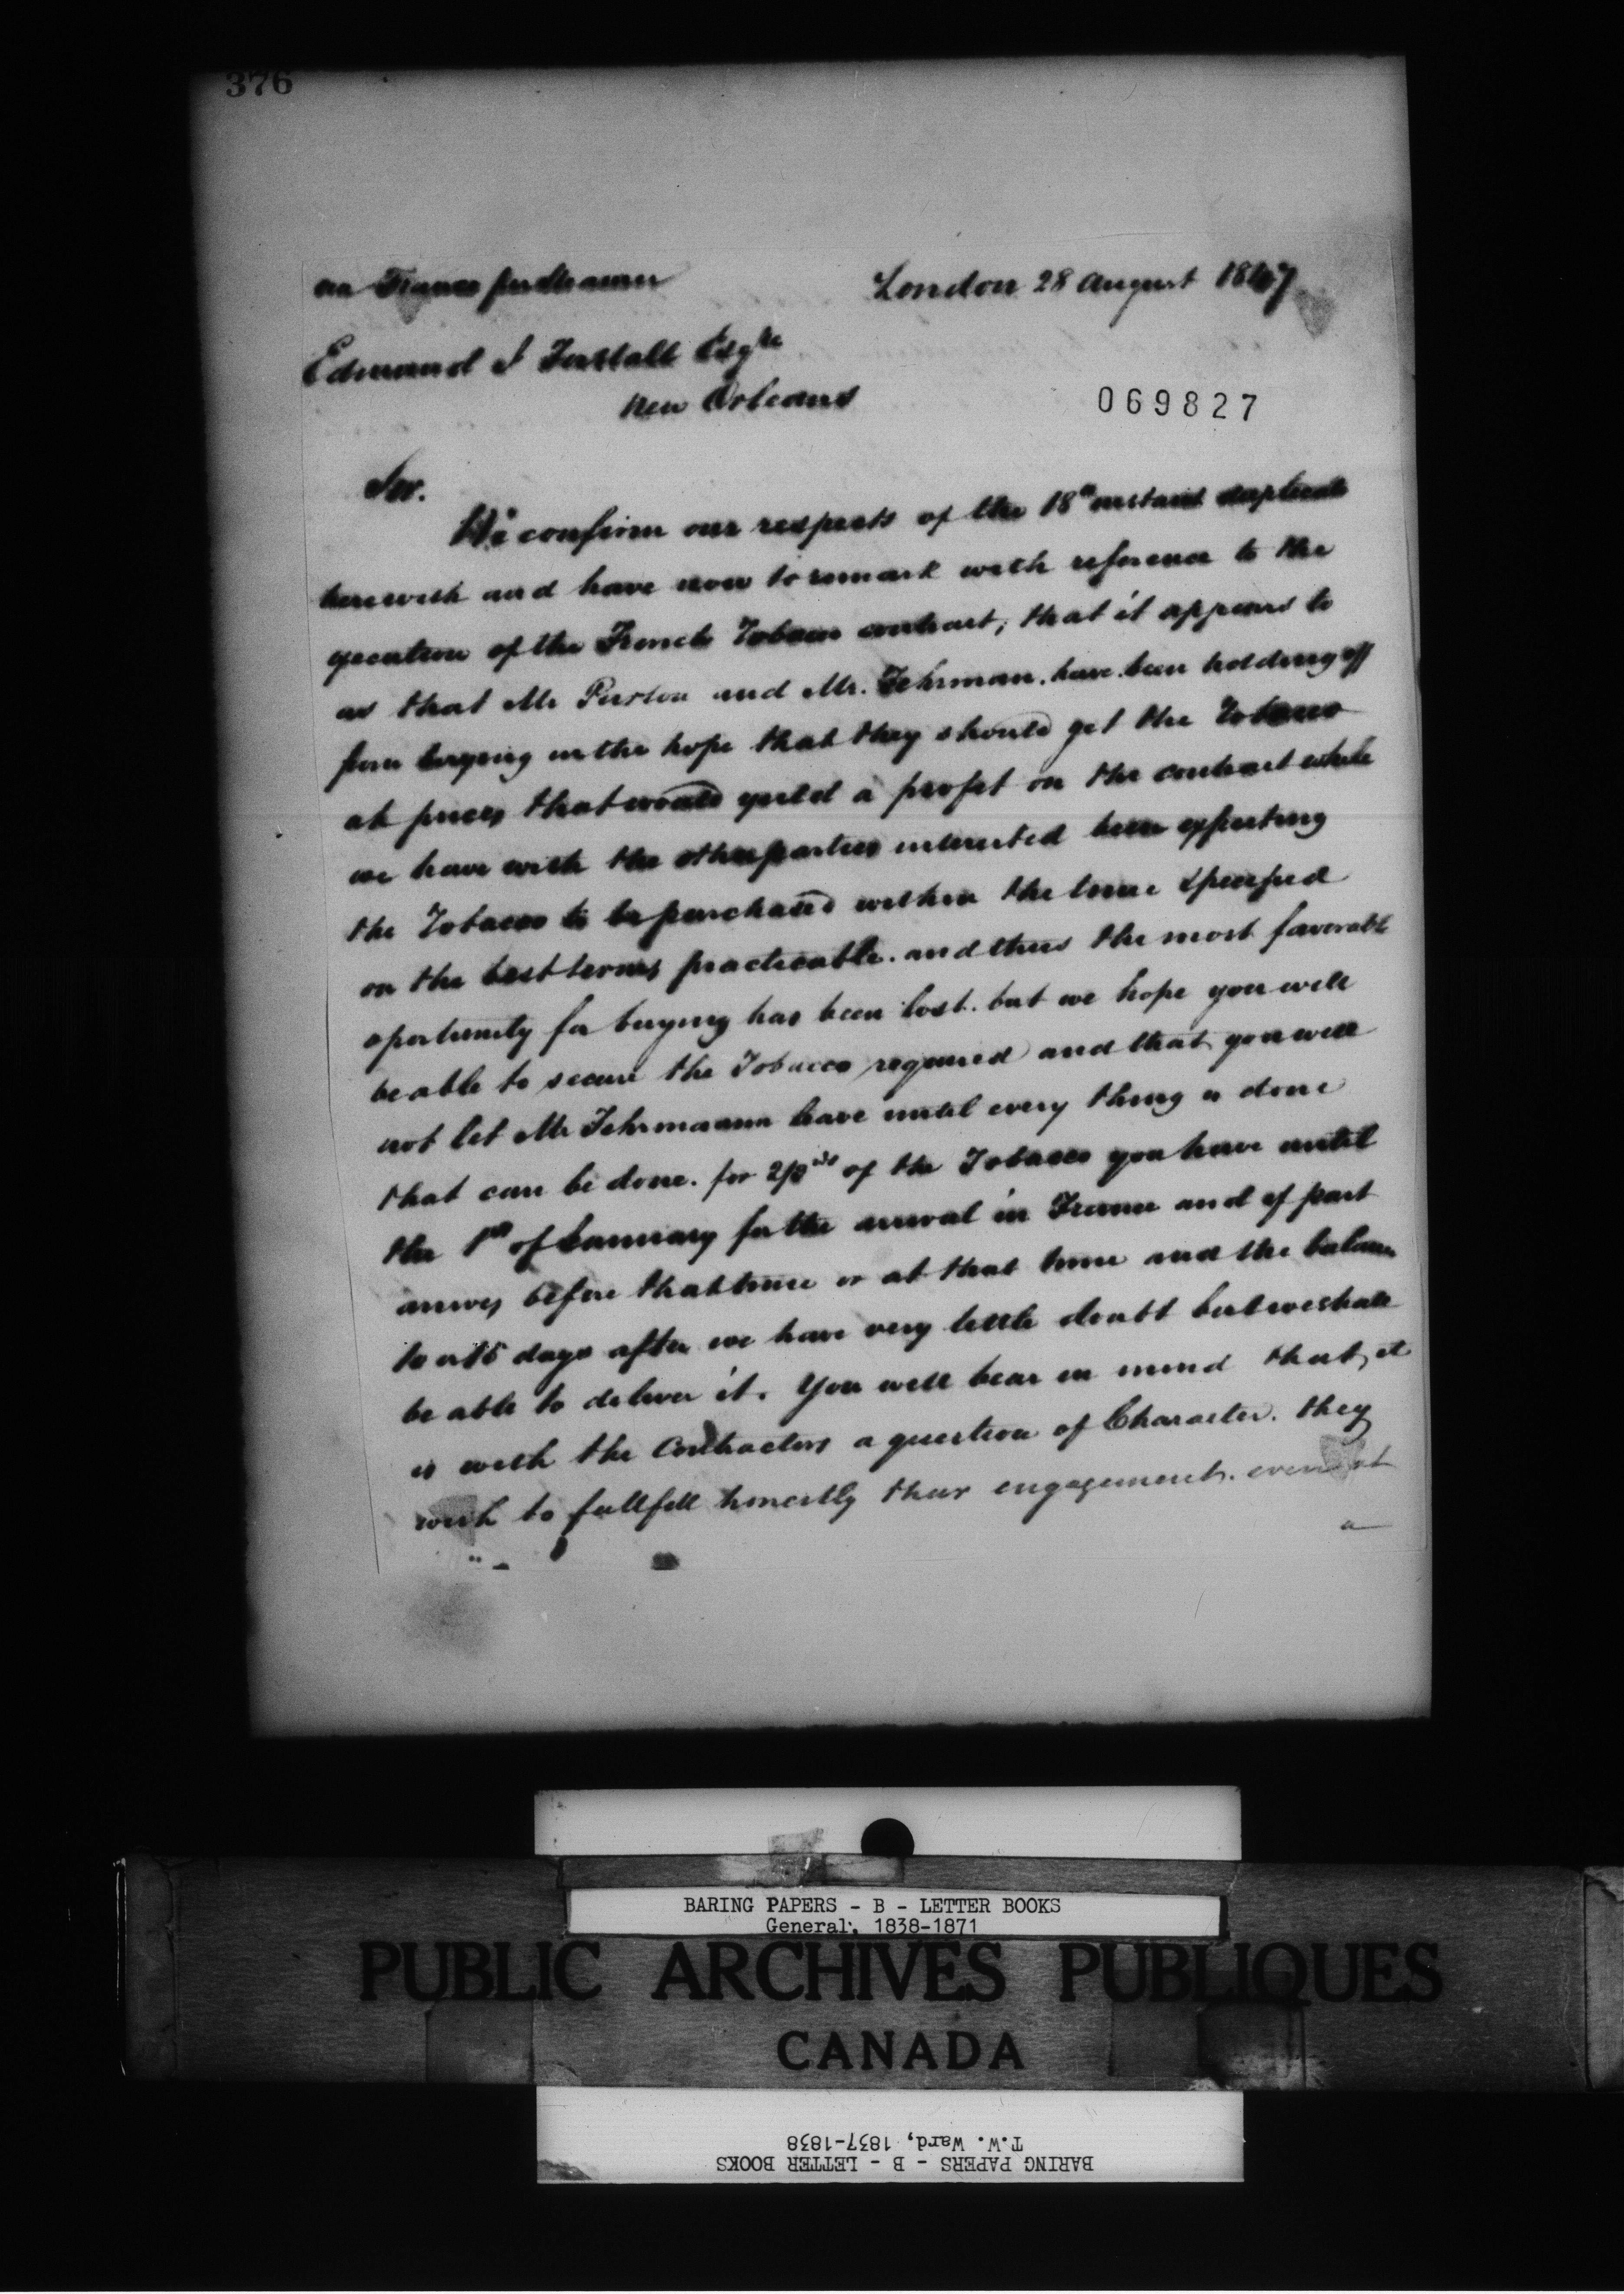 376
via France per Steamer London 28 August 1847
Edmund J Forstall Esqre
New Orleans
069827
Sir.
We confirm our respects of the 18th instant duplicate
herewith and have now to remark with reference to the
execution of the French Tobacco contract; that it appears to
us that Mr Purton and Mr. Fehrman. have been holding off
from buying in the hope that they should get the Tobacco
at prices that would yield a profit on the contract while
we have with the other parties interested been expecting
the Tobacco to be purchased within the time specified
on the best terms practicable. and thus the most favorable
oportunity for buying has been lost. but we hope you will
be able to secure the Tobacco required and that you will
not let Mr Fehrmann leave until every thing is done
that can be done. for 2/3ds of the Tobacco you have until
the 1st of January for the arrival in France and if part
arrives before that time or at that time and the balance
10 a 15 days after we have very little doubt but we shall
be able to deliver it. You will bear in mind that it
is with the Contractors a question of Character. they
wish to fullfill honestly their engagement. even at
a
BARING PAPERS - B - LETTER BOOKS
General, 1838-1871
PUBLIC ARCHIVES PUBLIQUES
CANADA
T.W. Ward, 1837-1838
BARING PAPERS - B - LETTER BOOKS